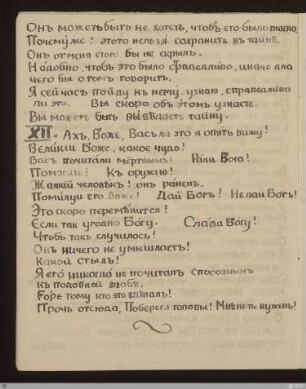 Онъ можетъ быть не хотетъ, чтобъ его было гласно.
Почему же: этого нельзя сохранить въ тайнѣ.
Онъ отменя етого бы не скрылъ.
Надобно, чтобъ это было справедливо, иначе для
чего бы о томъ говорить.
Я сей часъ пойду къ нему, узнаю, справедливо
ли это. Вы скоро объ этомъ узнаете.
Вы можете быть вывѣдаете тайну.
XII. Ахъ, Боже, Васъ ла это я опять вижу!
Великiй Боже, какое чудо!
Васъ почитали мертвымъ! Ради Бога!
Помогите! Къ оружiю!
Жалкiй человѣкъ! онъ раненъ.
Помилуи его Боже! Дай Богъ! Недай Богъ!
Это скоро перемѣнится!
Если такъ угодно Богу. Слава Богу!
Чтобъ такъ случилось!
Онъ ничего не умышлаетъ!
Какой стылъ!
Я его никогда не почиталъ способнымъ
къ подобной злобѣ.
Горе тому кто это
Прочь отсюда, Поберега головы! Мнѣ нетъ нужды!